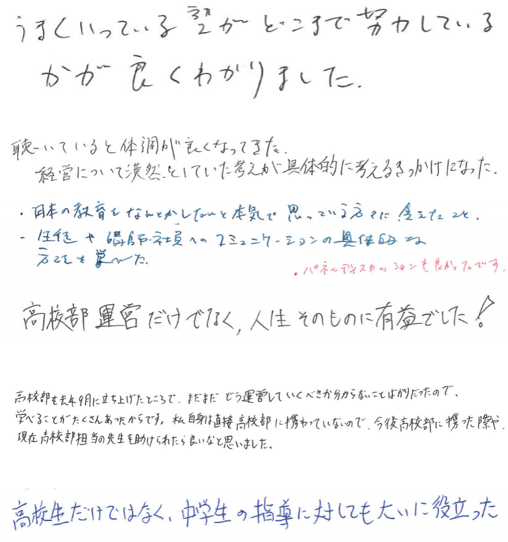 うまくいっている塾がどこまで努力している
かが良くわかりました。
聴いていると体調が良くなってきた。
経営について漠然としていた考えが具体的に考えるきっかけになった。
・日本の教育をなんとかしないと本気で思っている方々に会えたこと。
・生徒や講師・社員へのコミュニケーションの具体的な
方法を学べた。
・パネルディスカッションも良かったです。
高校部運営だけでなく、人生そのものに有益でした!
高校部を去年9月に立ち上げたところで、まだまだどう運営していくべきか分からないことばかりだったので、
学べることがたくさんあったからです。私自身は直接高校部に携わっていないので、今後高校部に携った際や、
現在高校部担当の先生を助けられたら良いなと思いました。
高校生だけではなく、中学生の指導に対しても大いに役立った